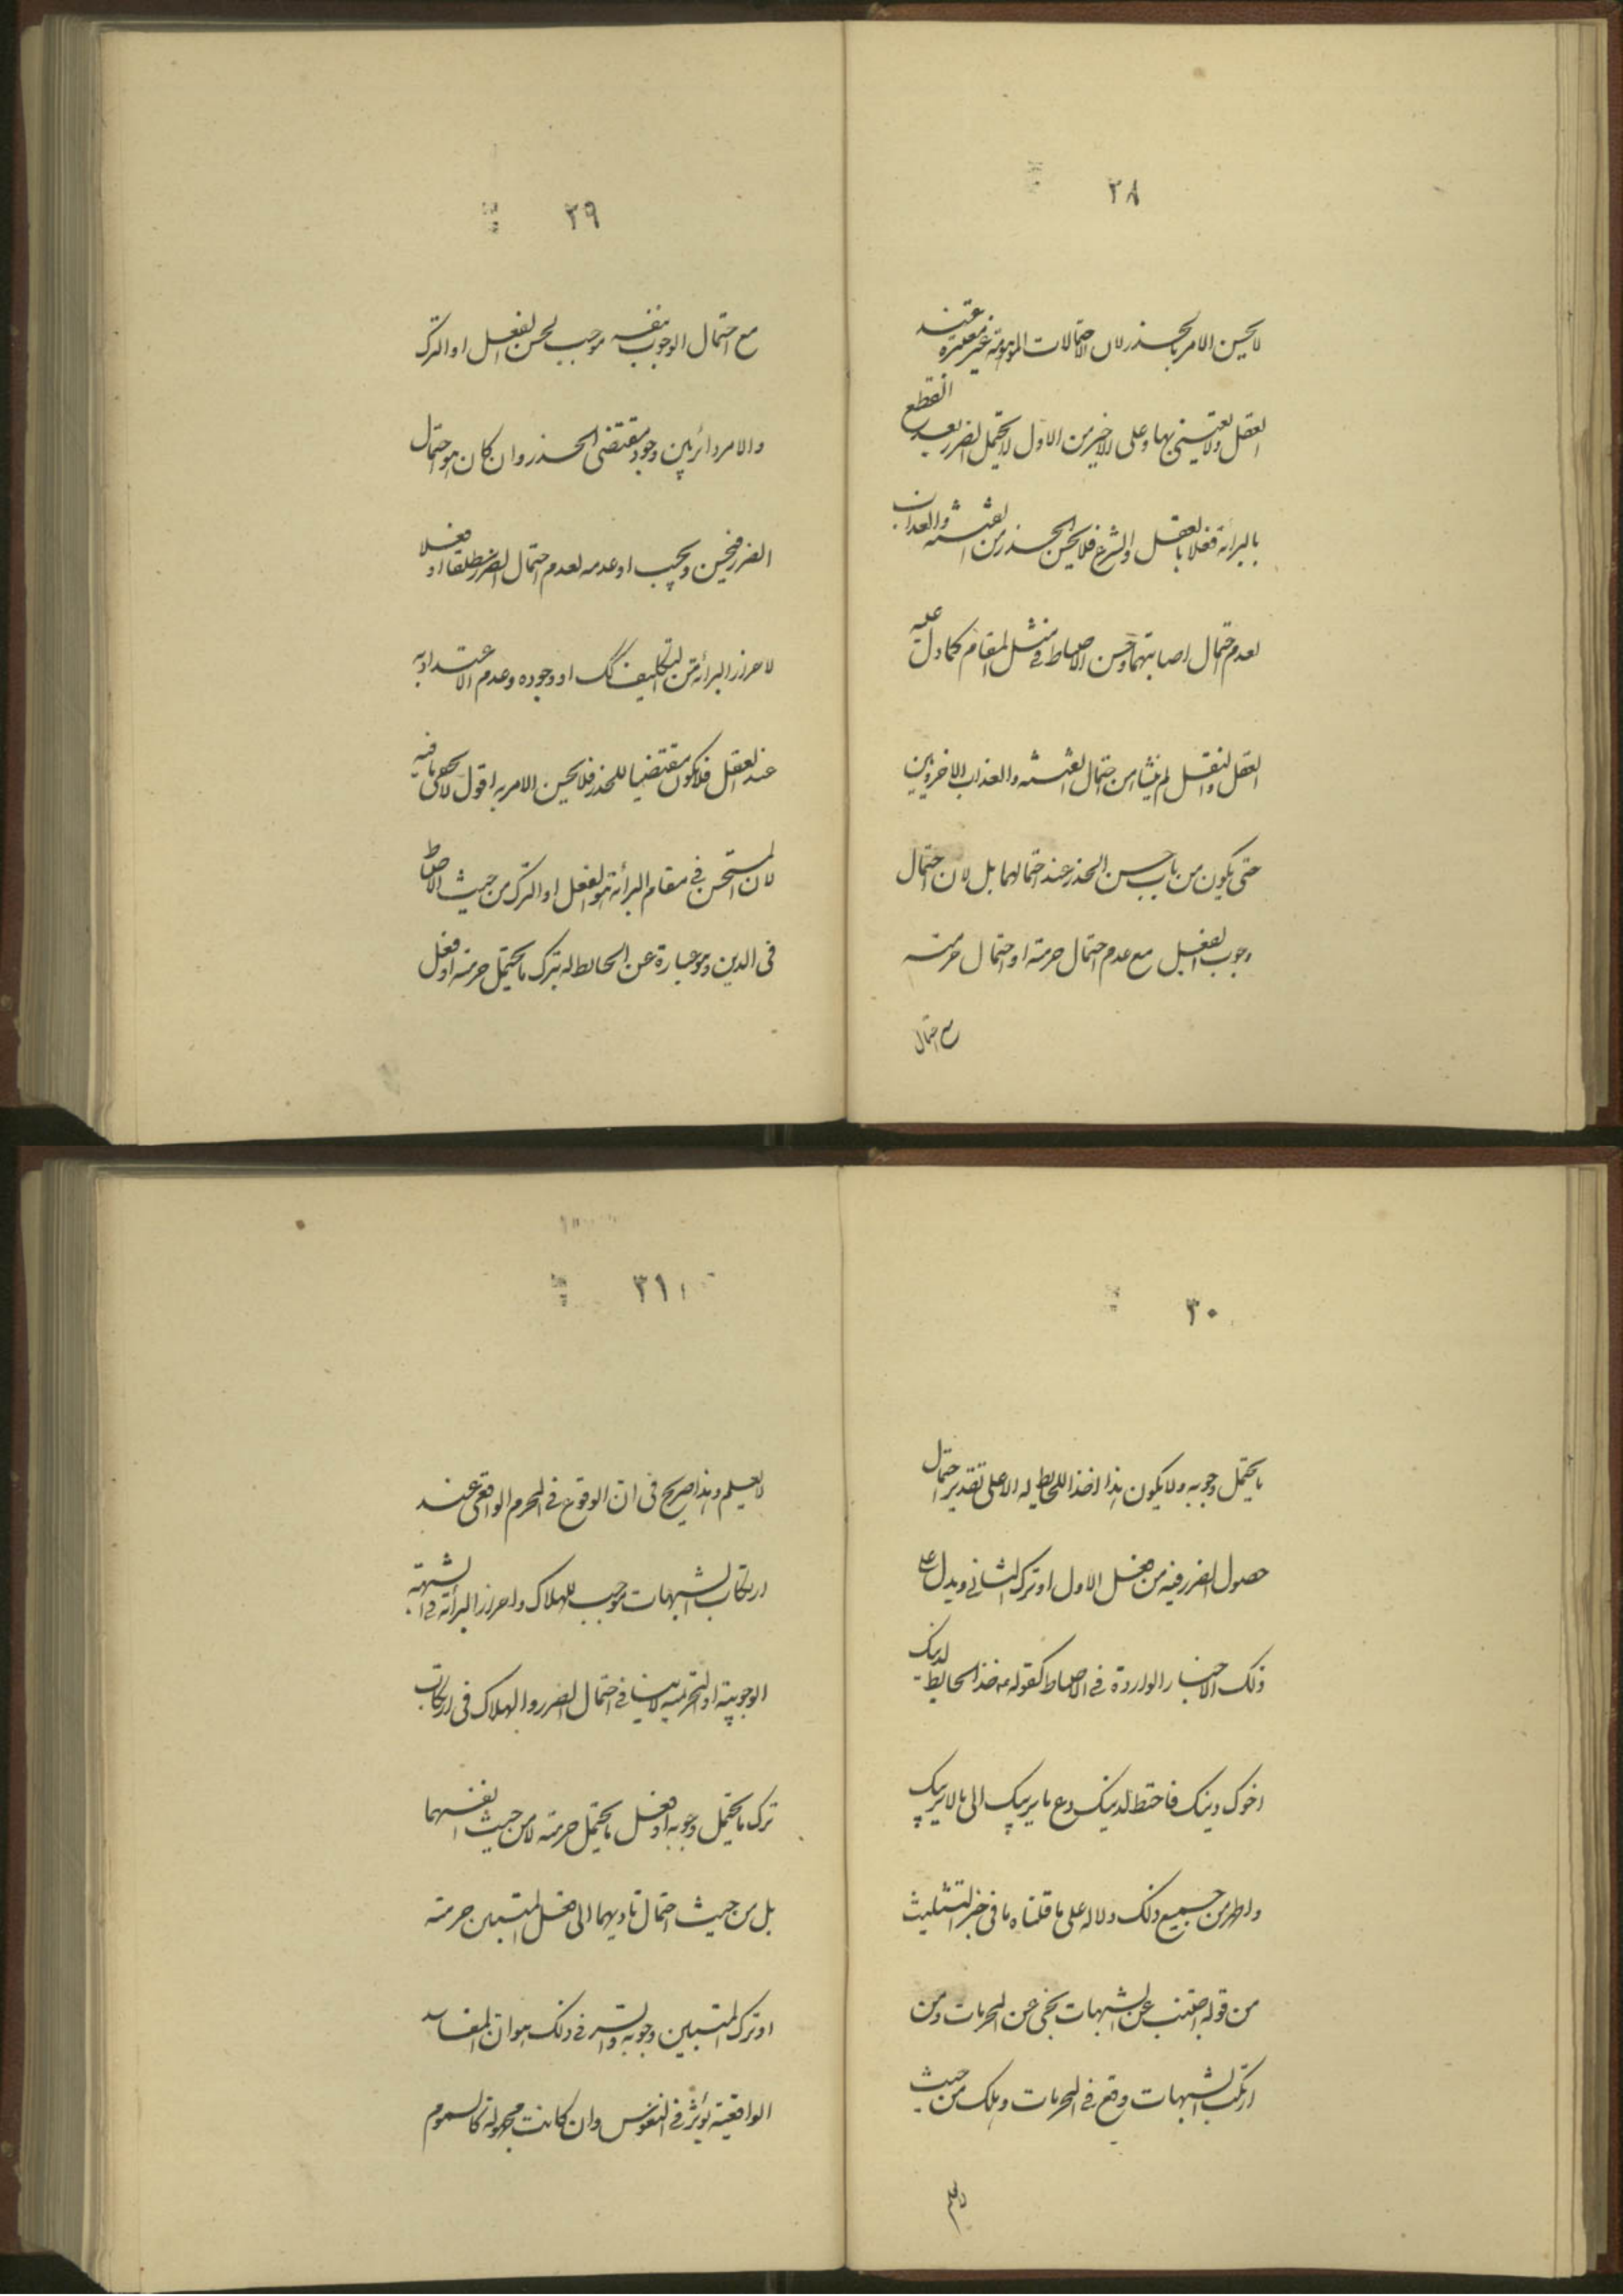 ٢٨
لا يحسن الامر بالحذر لان الاحتمالات الموهومة غير معتبرة عند
العقل ولا يعتنى بها وعلى الاخير من الاول لا يحتمل الضرر بعد القطع
بالبرائة فعلا بالعقل والشرع فلا يحسن الحذر من الفتنة والعذاب
لعدم احتمال اصابتهما وحسن الاحتياط في مثل المقام كما دل عليه
العقل والنقل لم ينشا من احتمال الفتنة والعذاب الاخرويين
حتى يكون من باب حسن الحذر عند احتمالهما بل لان احتمال
وجوب الفعل مع عدم احتمال حرمته او احتمال حرمته
مع احتمال
٢٩
مع احتمال الوجوب بنفسه موجب لحسن الفعل او الترك
والامر دائر بين وجود مقتضى الحذر وان كان هو احتمال
الضرر فيحسن ويجب او عدمه لعدم احتمال الضرر مطلقا او فعلا
لاحراز البرائة من التكليف كك او وجوده وعدم الاعتداد به
عند العقل فلا يكون مقتضيا للحذر فلا يحسن الامر به اقول لا يخفى ما فيه
لان المستحسن في مقام البرائة هو الفعل او الترك من حيث الاحتياط
في الدين وهو عبارة عن الحائطه له بترك ما يحتمل حرمته او فعل
٣٠
ما يحتمل وجوبه ولا يكون هذا اخذا للحايطه له الا على تقدير احتمال
حصول الضرر فيه من فعل الاول او ترك الثاني ويدل على
ذلك الاخبار الواردة في الاحتياط كقوله ع خذ الحايط لدينك
اخوك دينك فاحتط لدينك دع ما يريبك الى ما لا يريبك
واظهر من جميع ذلك دلاله على ما قلناه ما في خبر التثليث
من قوله اجتنب عن الشبهات نجى عن المحرمات ومن
ارتكب الشبهات وقع في المحرمات وهلك من حيث
لا يعلم
٣١
لا يعلم وهذا صريح في ان الوقوع في المحرم الواقعى عند
ارتكاب الشبهات موجب للهلاك واحراز البرائة في الشبهة
الوجوبية او التحريمية لا ينافي احتمال الضرر والهلاك في ارتكاب
ترك ما يحتمل وجوبه او فعل ما يحتمل حرمته لا من حيث انفسهما
بل من حيث احتمال تاديهما الى فعل المتبين حرمته
او ترك المتبين وجوبه والسر في ذلك هو ان المفاسد
الواقعية يؤثر في النفوس وان كانت مجهولة كالسموم